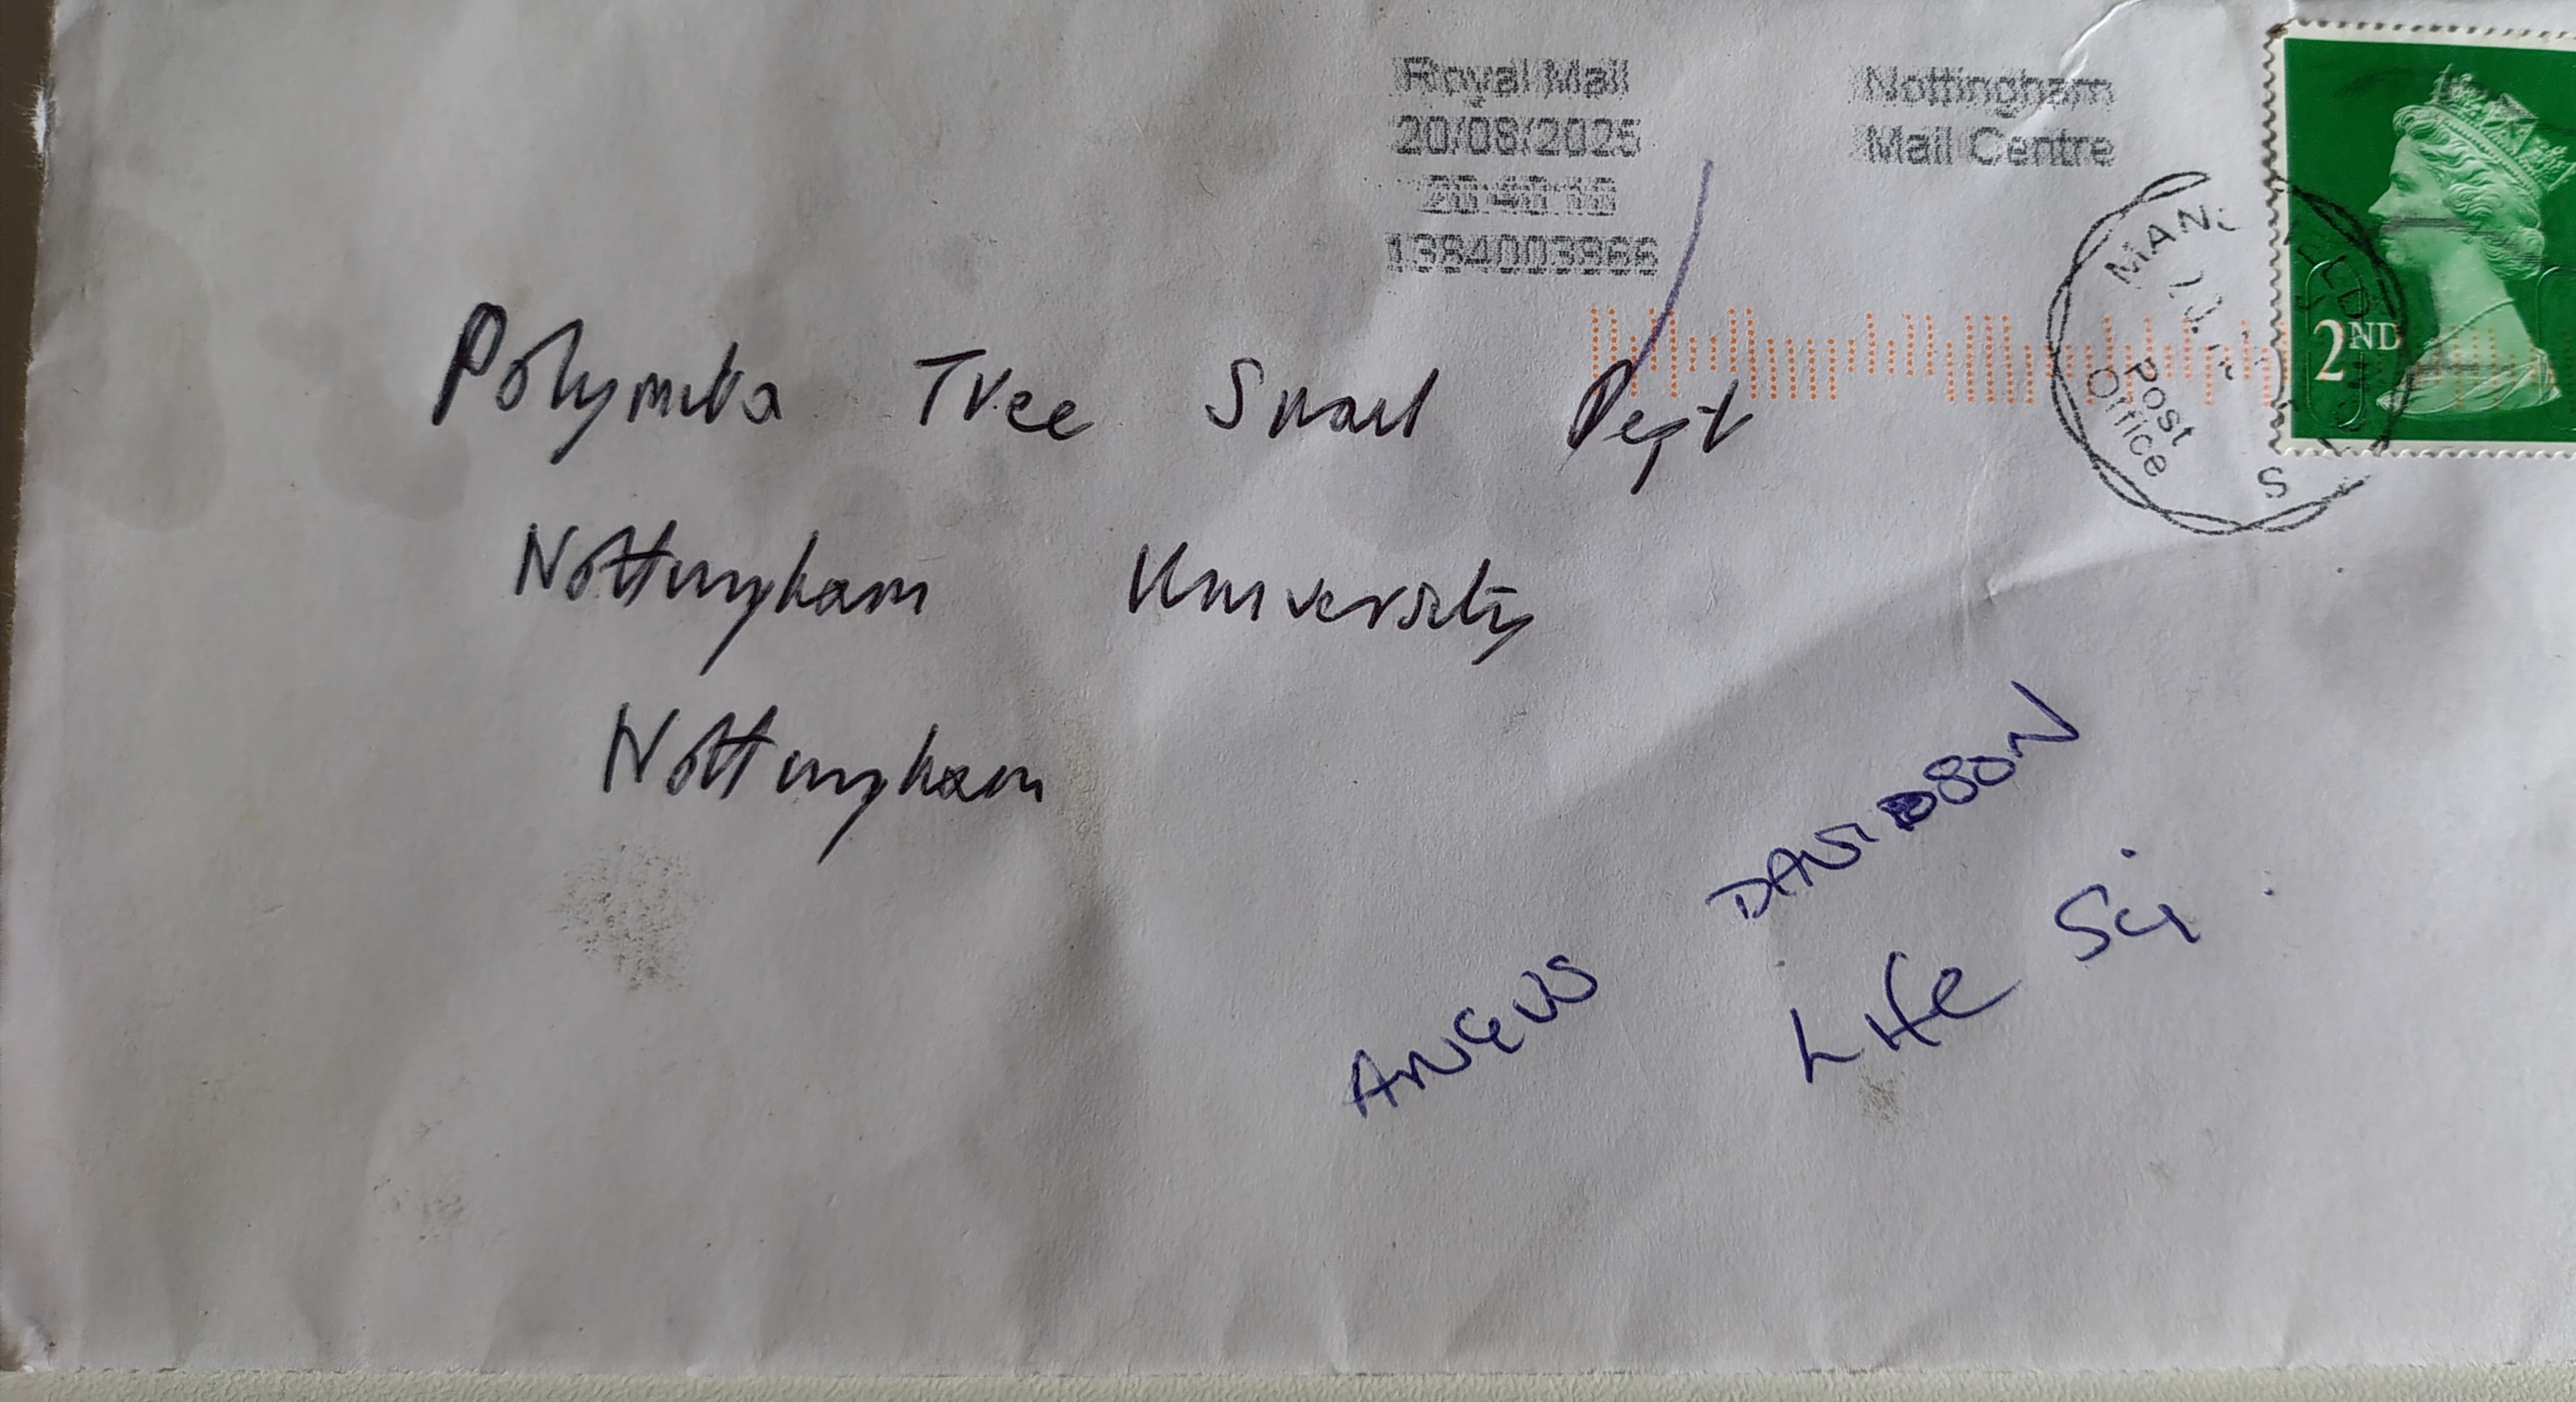 Royal Mail
20/08/2025
1384003966
Nottingham
Mail Centre
2ND
Post
Office
Polymita Tree Snail Dept
Nottingham University
Nottingham
ANGUS DAVIDSON
Life Sci.